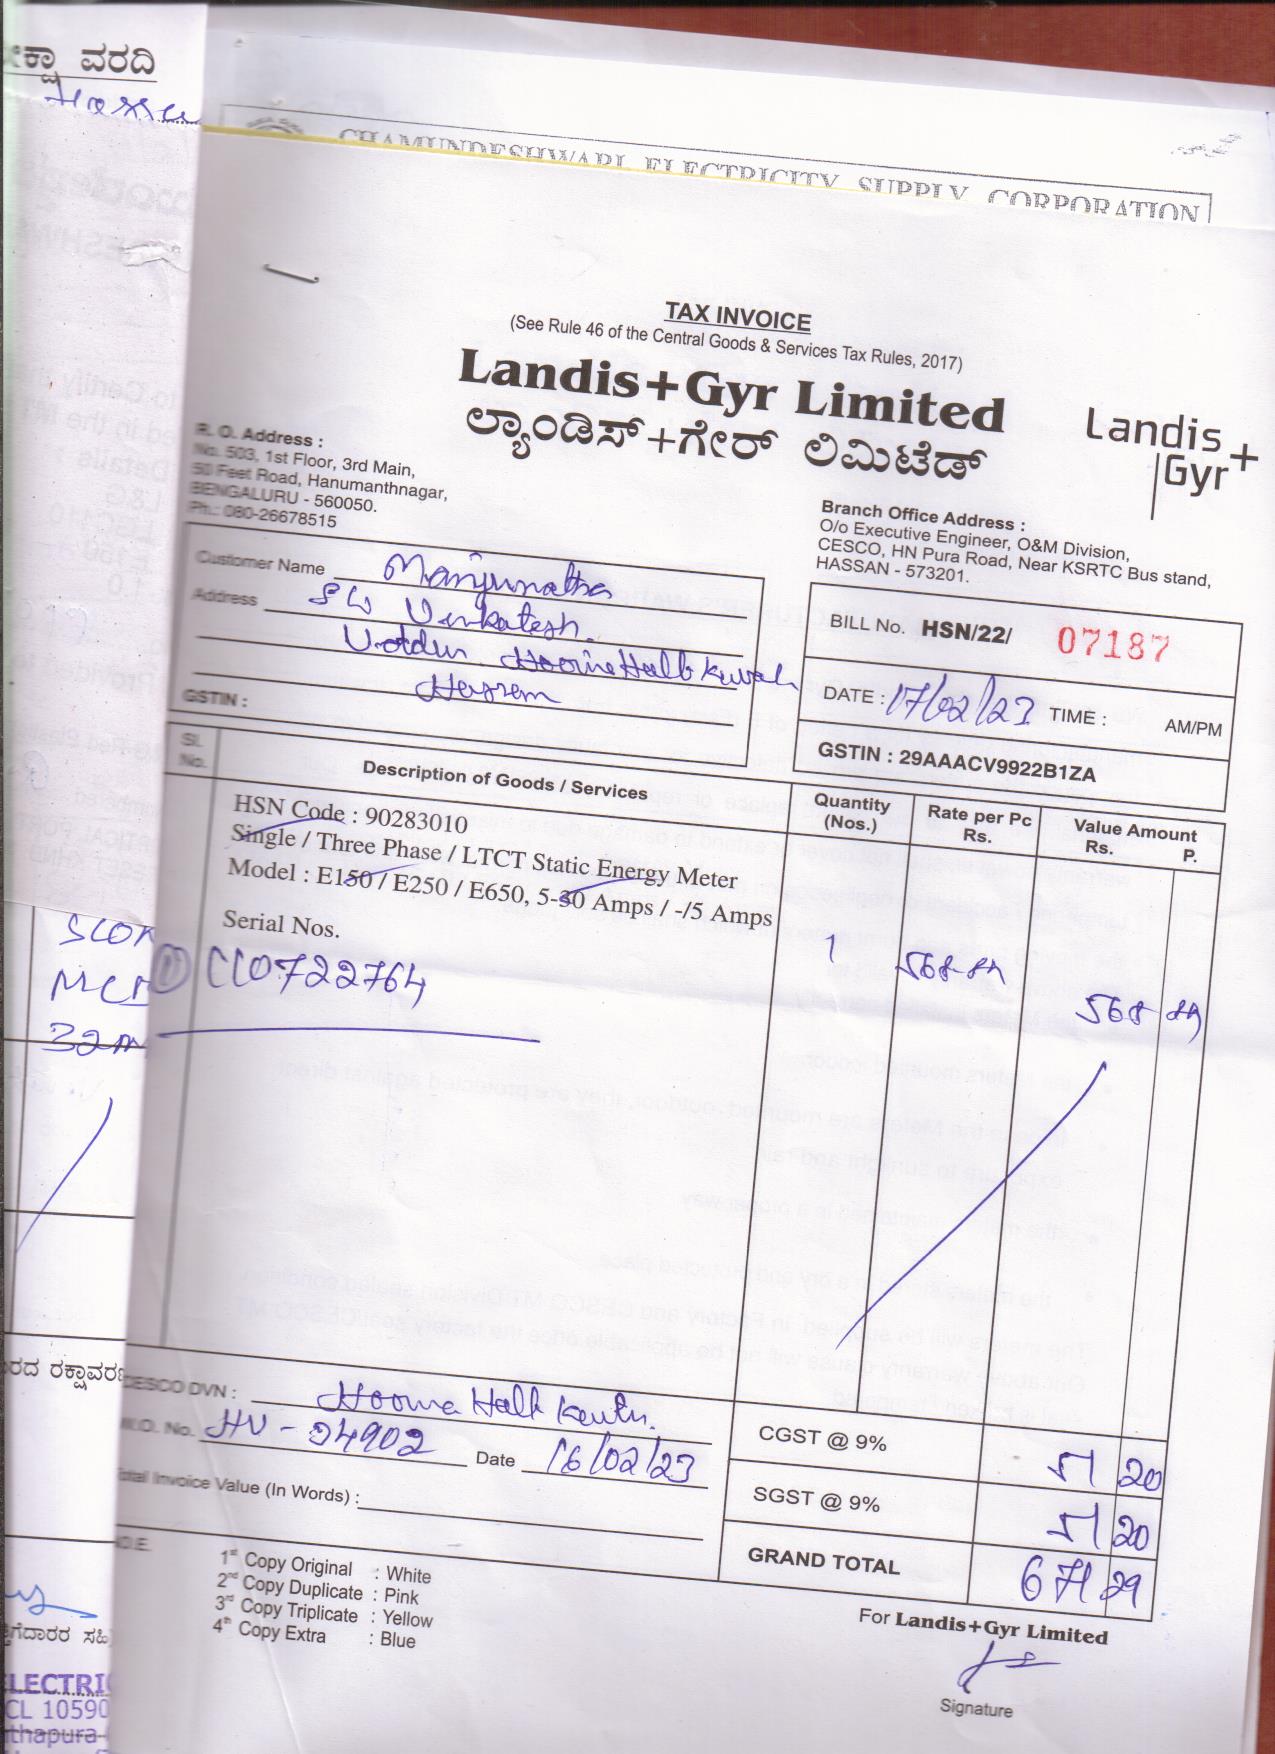 ಕ್ಷಾ ವರದಿ
CHAMUNDESHWARI ELECTRICITY SUPPLY CORPORATION
TAX INVOICE
(See Rule 46 of the Central Goods & Services Tax Rules, 2017)
Landis+Gyr Limited
ಲ್ಯಾಂಡಿಸ್+ಗೇರ್ ಲಿಮಿಟೆಡ್
Landis+
Gyr
R. O. Address :
No. 503, 1st Floor, 3rd Main,
50 Feet Road, Hanumanthnagar,
BENGALURU - 560050.
Ph.: 080-26678515
Branch Office Address :
O/o Executive Engineer, O&M Division,
CESCO, HN Pura Road, Near KSRTC Bus stand,
HASSAN - 573201.
Customer Name Manjunatha
Address S/o Venkatesh.
Hassan
GSTIN :
BILL No. HSN/22/ 07187
DATE : 17/02/23 TIME : AM/PM
GSTIN : 29AAACV9922B1ZA
Sl. No. Description of Goods / Services Quantity (Nos.) Rate per Pc Rs. Value Amount Rs. P.
HSN Code : 90283010
Single / Three Phase / LTCT Static Energy Meter
Model : E150 / E250 / E650, 5-30 Amps / -/5 Amps
Serial Nos.
1) CC0722764 1 568-89 568 89
32
CESCO DVN :
M.O. No. HV - 34902 Date 16/02/23
Total Invoice Value (In Words) :
CGST @ 9% 51 20
SGST @ 9% 51 20
GRAND TOTAL 671 29
1st Copy Original : White
2nd Copy Duplicate : Pink
3rd Copy Triplicate : Yellow
4th Copy Extra : Blue
For Landis+Gyr Limited
Signature
ELECTRI
CL 10590
thapura